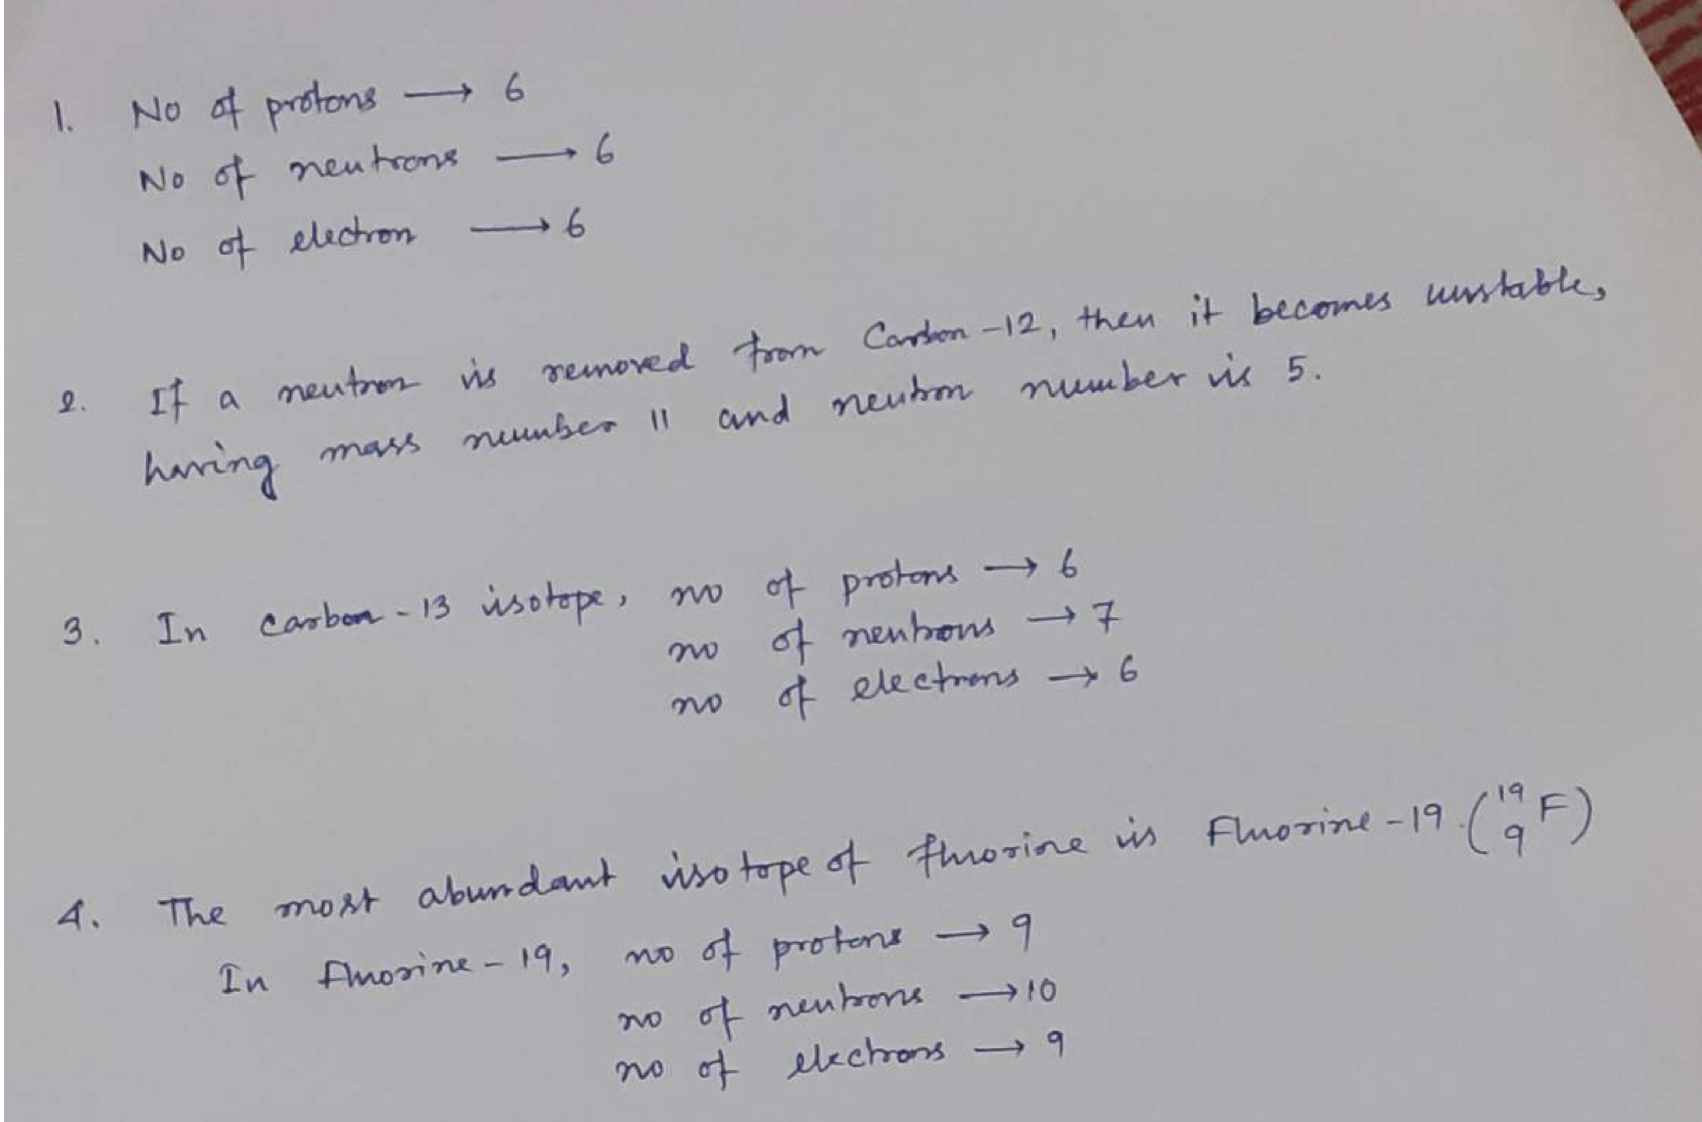 1. No of protons → 6
No of neutrons → 6
No of electron → 6
2. If a neutron is removed from Carbon-12, then it becomes unstable,
having mass number 11 and neutron number is 5.
3. In carbon-13 isotope, no of protons → 6
no of neutrons → 7
no of electrons → 6
4. The most abundant isotope of fluorine is Fluorine-19. (¹⁹₉F)
In fluorine-19, no of protons → 9
no of neutrons → 10
no of electrons → 9